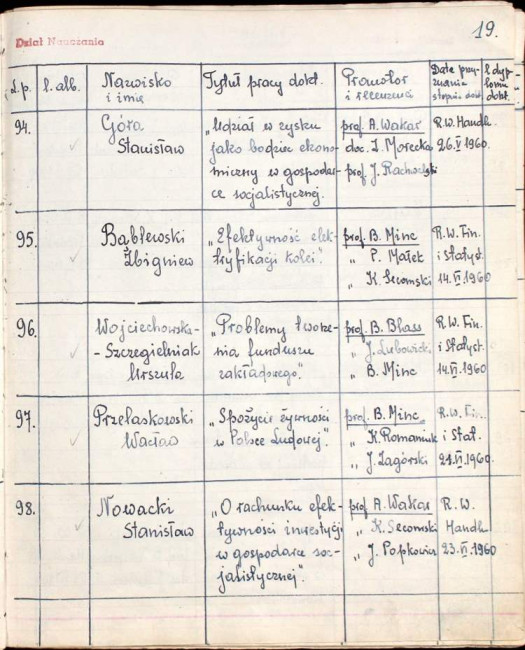 19.
Dział Nauczania
L.p. l. alb. Nazwisko i imię Tytuł pracy dokt. Promotor i recenzenci Data przyznania stopnia dokt. l. dyplomu dokt.
94. Góra Stanisław
„Udział w zysku
jako bodziec ekono-
miczny w gospodar-
ce socjalistycznej.
prof. A. Wakar
doc. J. Morecka
prof. J. Rachwalski
R.W. Handl.
26.V 1960.
95. Bąblewski
Zbigniew
„Efektywność elek-
tryfikacji kolei."
prof. B. Minc
„ P. Małek
„ K. Secomski
R.W. Fin.
i Statyst.
14.VI 1960
96. Wojciechowska-
-Szczegielniak
Urszula
„Problemy tworze-
nia funduszu
zakładowego."
prof. B. Blass
„ J. Lubowicki
„ B. Minc
R.W. Fin.
i Statyst.
14.VI 1960
97. Przelaskowski
Wacław
„Spożycie żywności
w Polsce Ludowej."
prof. B. Minc
„ K. Romaniuk
„ J. Zagórski
R.W. Fin.
i Stat.
21.VI 1960.
98. Nowacki
Stanisław
„O rachunku efek-
tywności inwestycji
w gospodarce soc-
jalistycznej".
prof. A. Wakar
„ K. Secomski
„ J. Popkiewicz
R.W.
Handlu
23.VI 1960